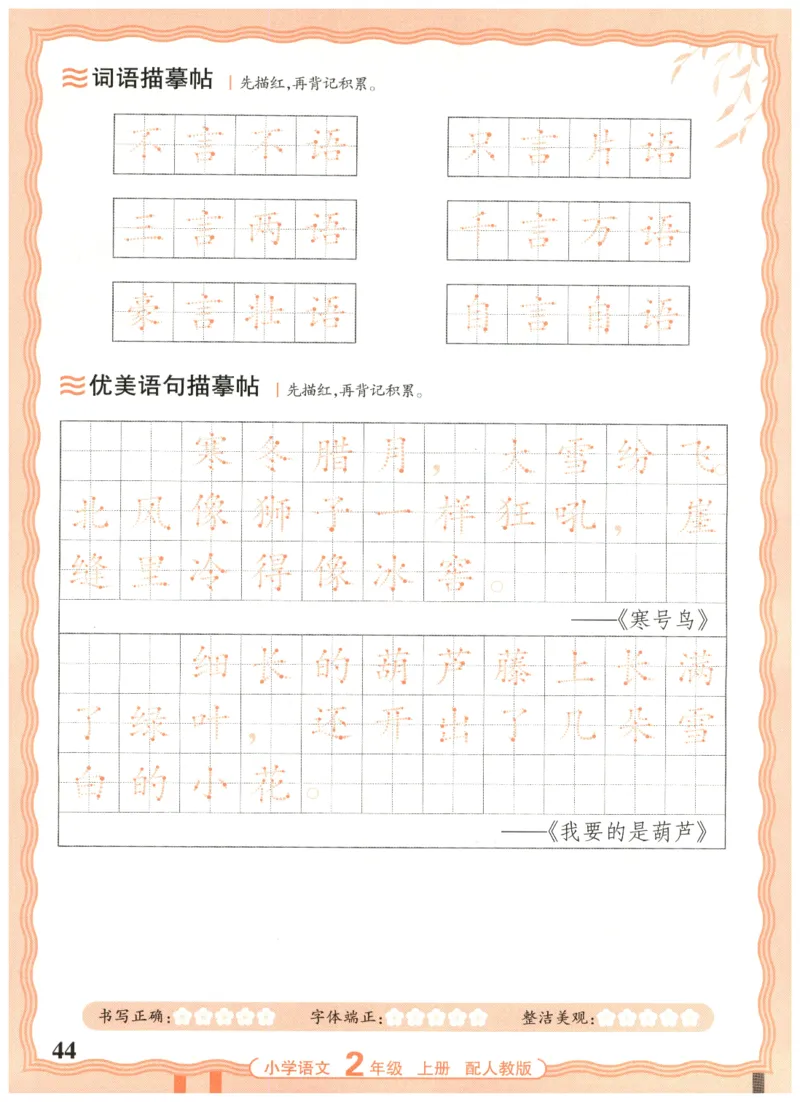 词语描摹帖 先描红,再背记积累。
不言不语 只言片语
三言两语 千言万语
豪言壮语 自言自语
优美语句描摹帖 先描红,再背记积累。
寒冬腊月,大雪纷飞。
北风像狮子一样狂吼,崖
缝里冷得像冰窖。
——《寒号鸟》
细长的葫芦藤上长满
了绿叶,还开出了几朵雪
白的小花。
——《我要的是葫芦》
书写正确: 字体端正: 整洁美观:
44
小学语文 2年级 上册 配人教版